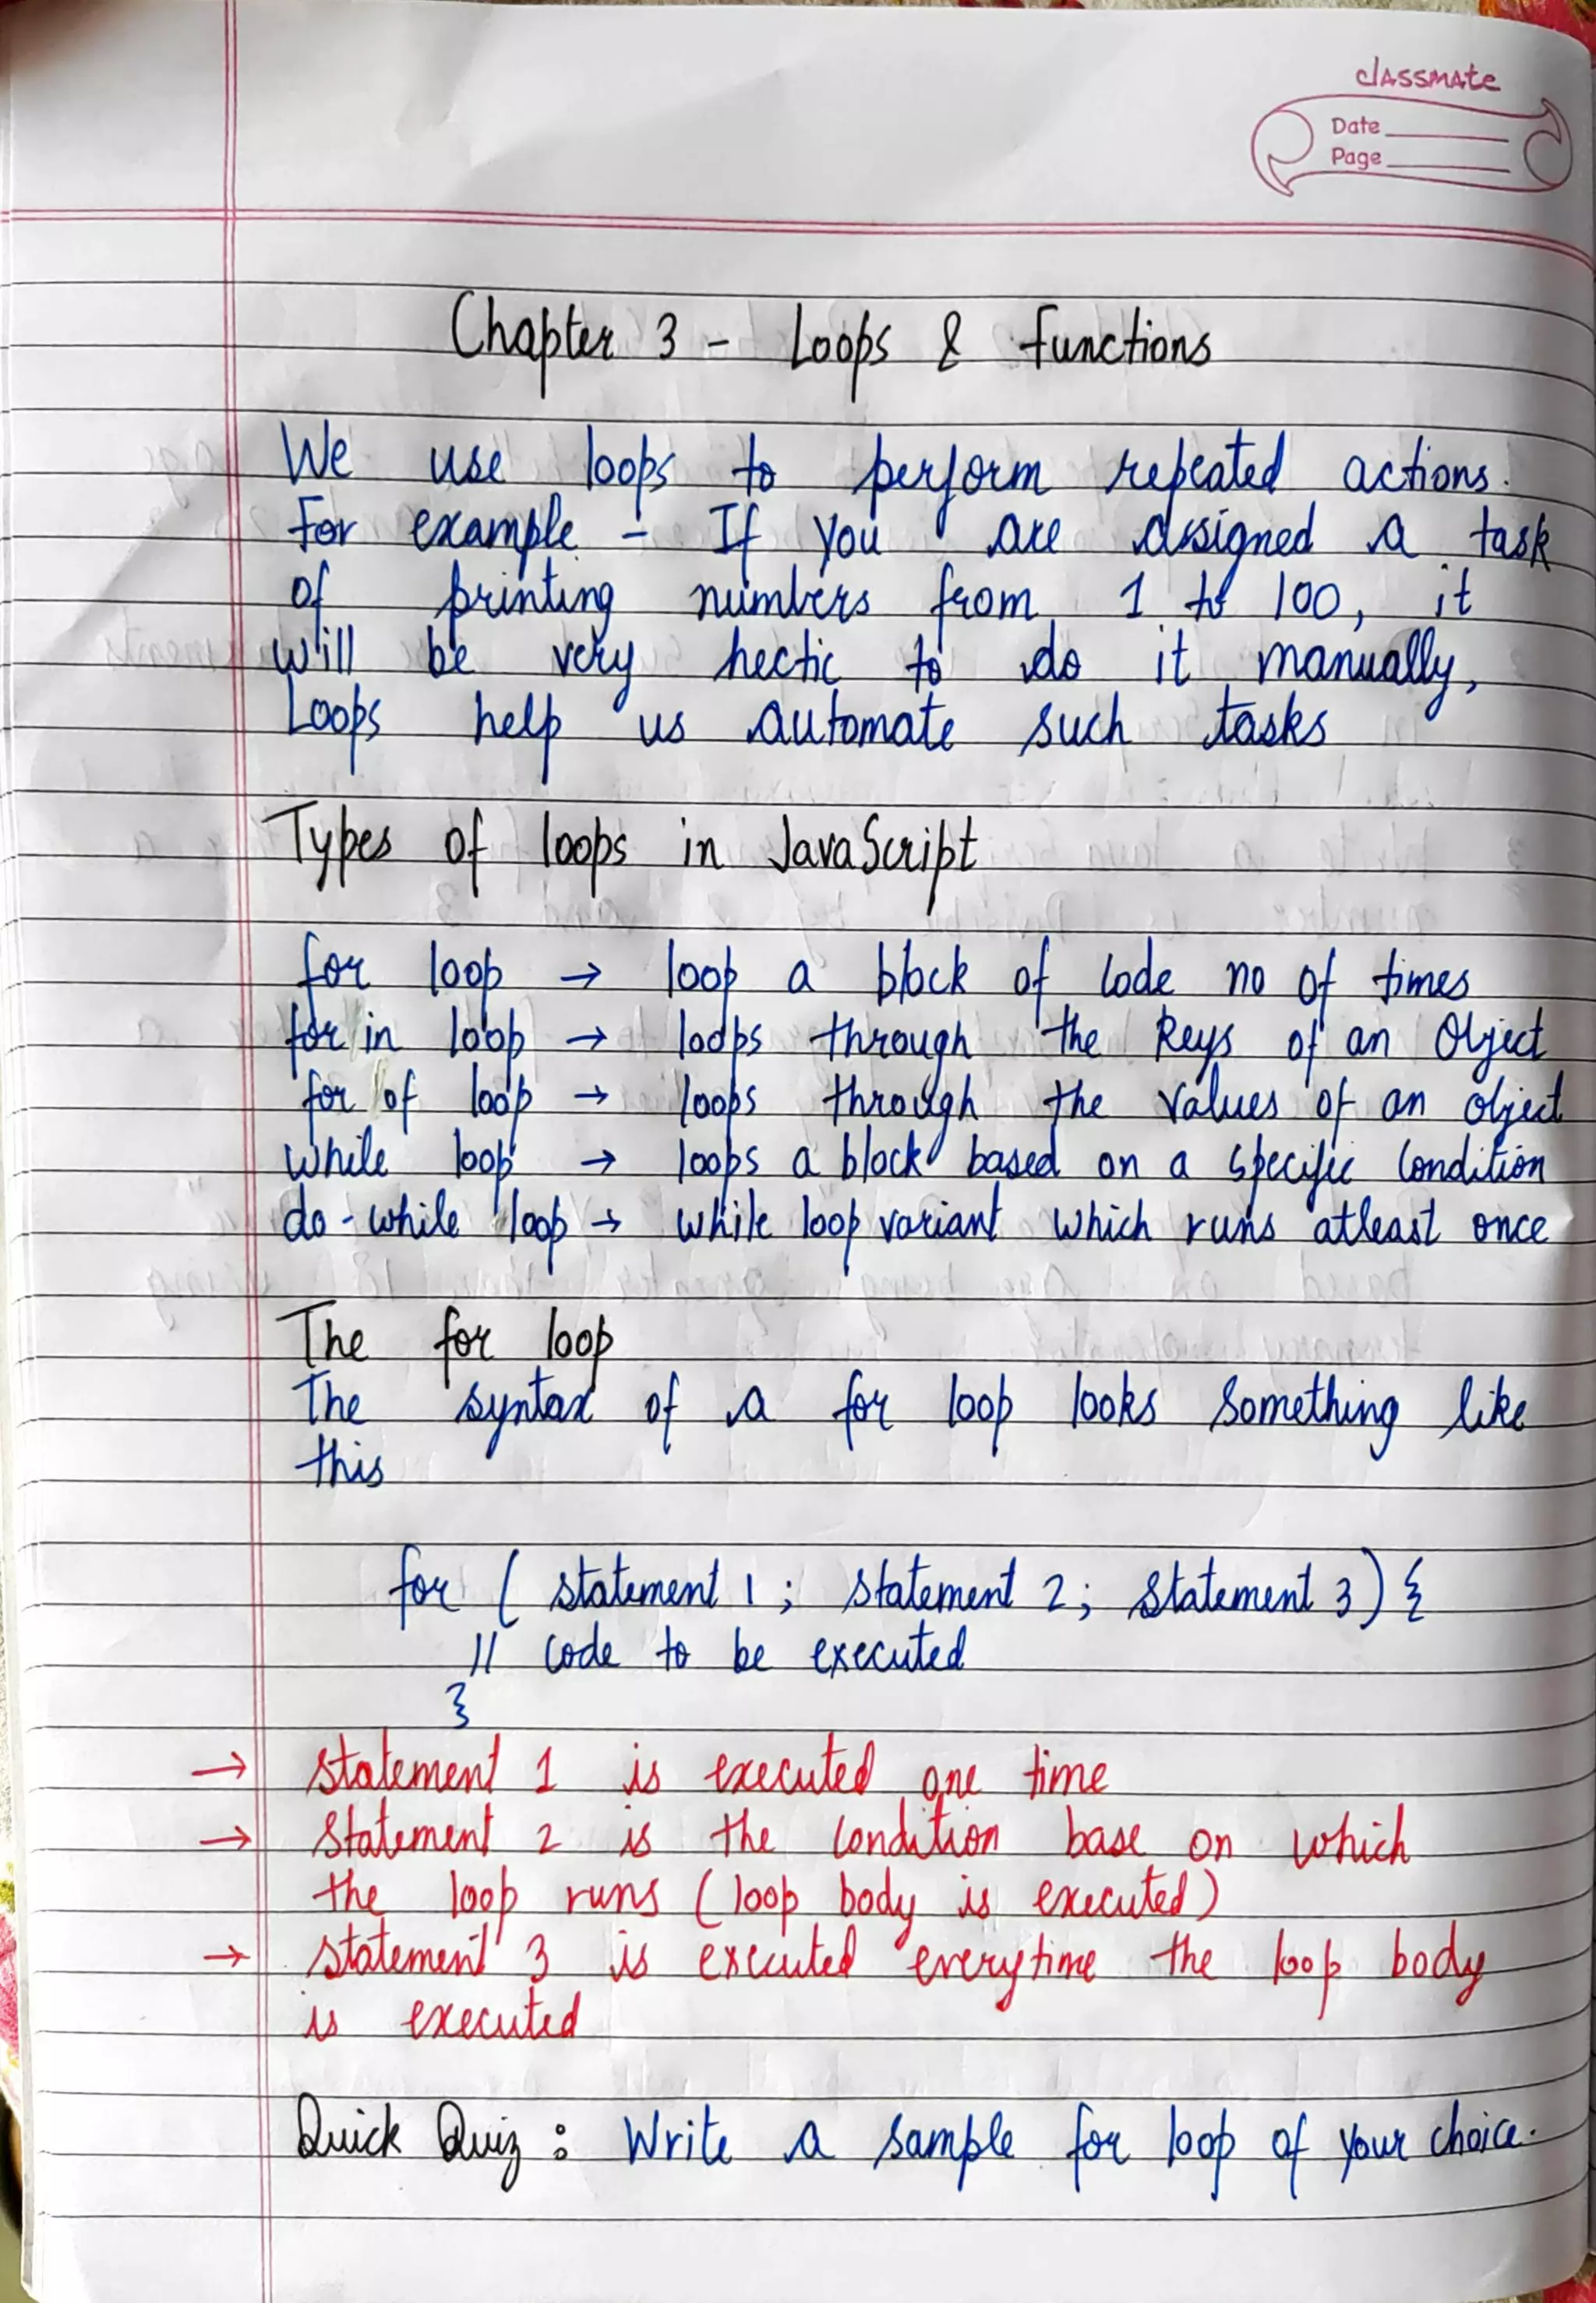 classmate
Date
Page
Chapter 3 - Loops & functions
We use loops to perform repeated actions.
For example - If you are assigned a task
of printing numbers from 1 to 100, it
will be very hectic to do it manually,
Loops help us automate such tasks
Types of loops in JavaScript
for loop → loop a block of code no of times
for in loop → loops through the keys of an Object
for of loop → loops through the values of an object
while loop → loops a block based on a specific condition
do-while loop → while loop variant which runs atleast once
The for loop
The syntax of a for loop looks something like
this
for ( statement 1 ; statement 2 ; statement 3 ) {
// code to be executed
}
→ statement 1 is executed one time
→ statement 2 is the condition base on which
the loop runs (loop body is executed)
→ statement 3 is executed everytime the loop body
is executed
Quick Quiz : Write a sample for loop of your choice.